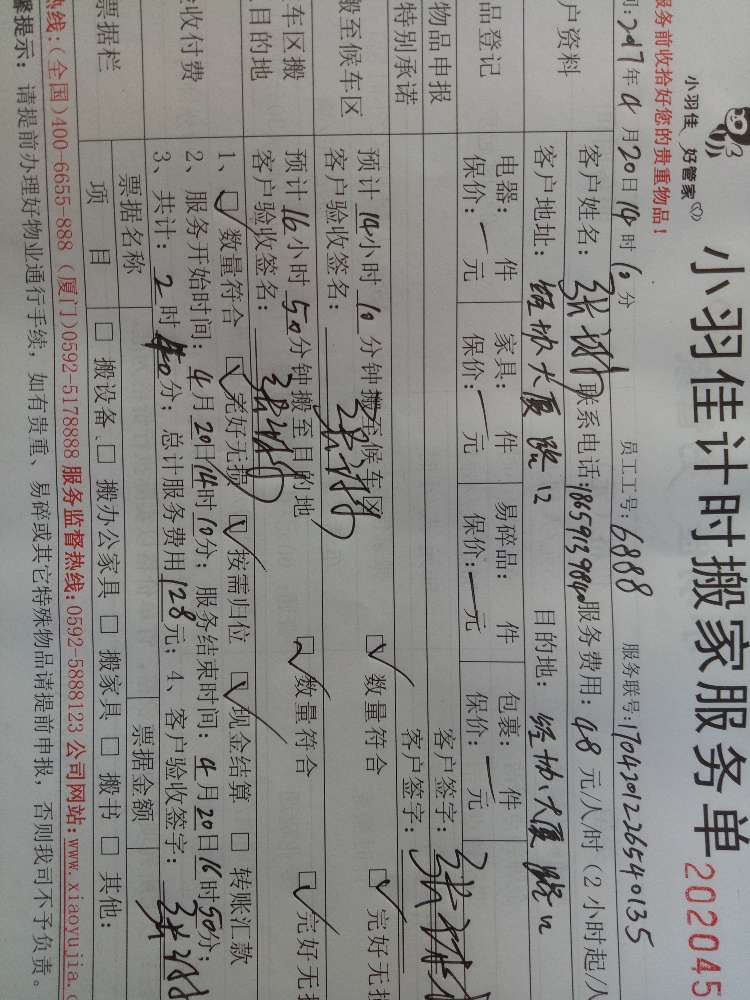 小羽佳 好管家
小羽佳计时搬家服务单
202045
服务前收拾好您的贵重物品！
2017年4月20日14时10分 员工工号：6888 服务联号：
户资料 客户姓名： 联系电话： 服务费用：48元/人/时（2小时起/人
客户地址： 大厦路口 目的地： 大厦路口
品登记 电器： 件 家具： 件 易碎品： 件 包裹： 件
保价：一元 保价：一元 保价：一元 保价：一元
物品申报 客户签字：
特别承诺 客户签字：
搬至候车区 预计14小时10分钟搬至候车区 ☑数量符合 ☑完好无损
客户验收签名：
车区搬 预计16小时50分钟搬至目的地 ☑数量符合 ☑完好无损
目的地 客户验收签名：
收付费 1、☑数量符合 ☑完好无损 ☑按需归位 ☑现金结算 □转账汇款
2、服务开始时间：4月20日14时10分；服务结束时间：4月20日16时50分；
3、共计：2时40分；总计服务费用128元；4、客户验收签字：
票据栏 票据名称 票据金额
项目 □搬设备、□搬办公家具 □搬家具 □搬书 □其他：
热线：(全国)400-6655-888 (厦门)0592-5178888 服务监督热线：0592-5888123 公司网站：www.xiaoyujia.c
馨提示：请提前办理好物业通行手续，如有贵重、易碎或其它特殊物品请提前申报，否则我司不予负责。